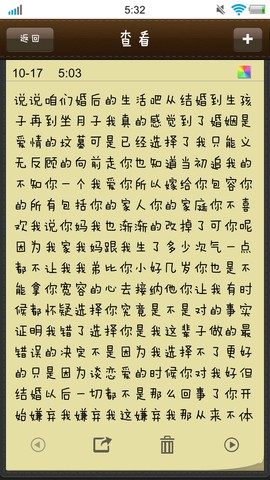 5:32
返回
查看
10-17 5:03
说说咱们婚后的生活吧从结婚到生孩
子再到坐月子我真的感觉到了婚姻是
爱情的坟墓可是已经选择了我只能义
无反顾的向前走你也知道当初追我的
不知你一个我爱你所以嫁给你包容你
的所有包括你的家人你的家庭你不喜
欢我说你妈我也渐渐的改掉了可你呢
因为我家我妈跟我生了多少次气一点
都不让我我弟比你小好几岁你也是不
能拿你宽容的心去接纳他你让我有时
候都怀疑选择你究竟是不是对的事实
证明我错了选择你是我这辈子做的最
错误的决定不是因为我选择不了更好
的只是因为谈恋爱的时候你对我好但
结婚以后一切都不是那么回事了你开
始嫌弃我嫌弃我这嫌弃我那从来不体